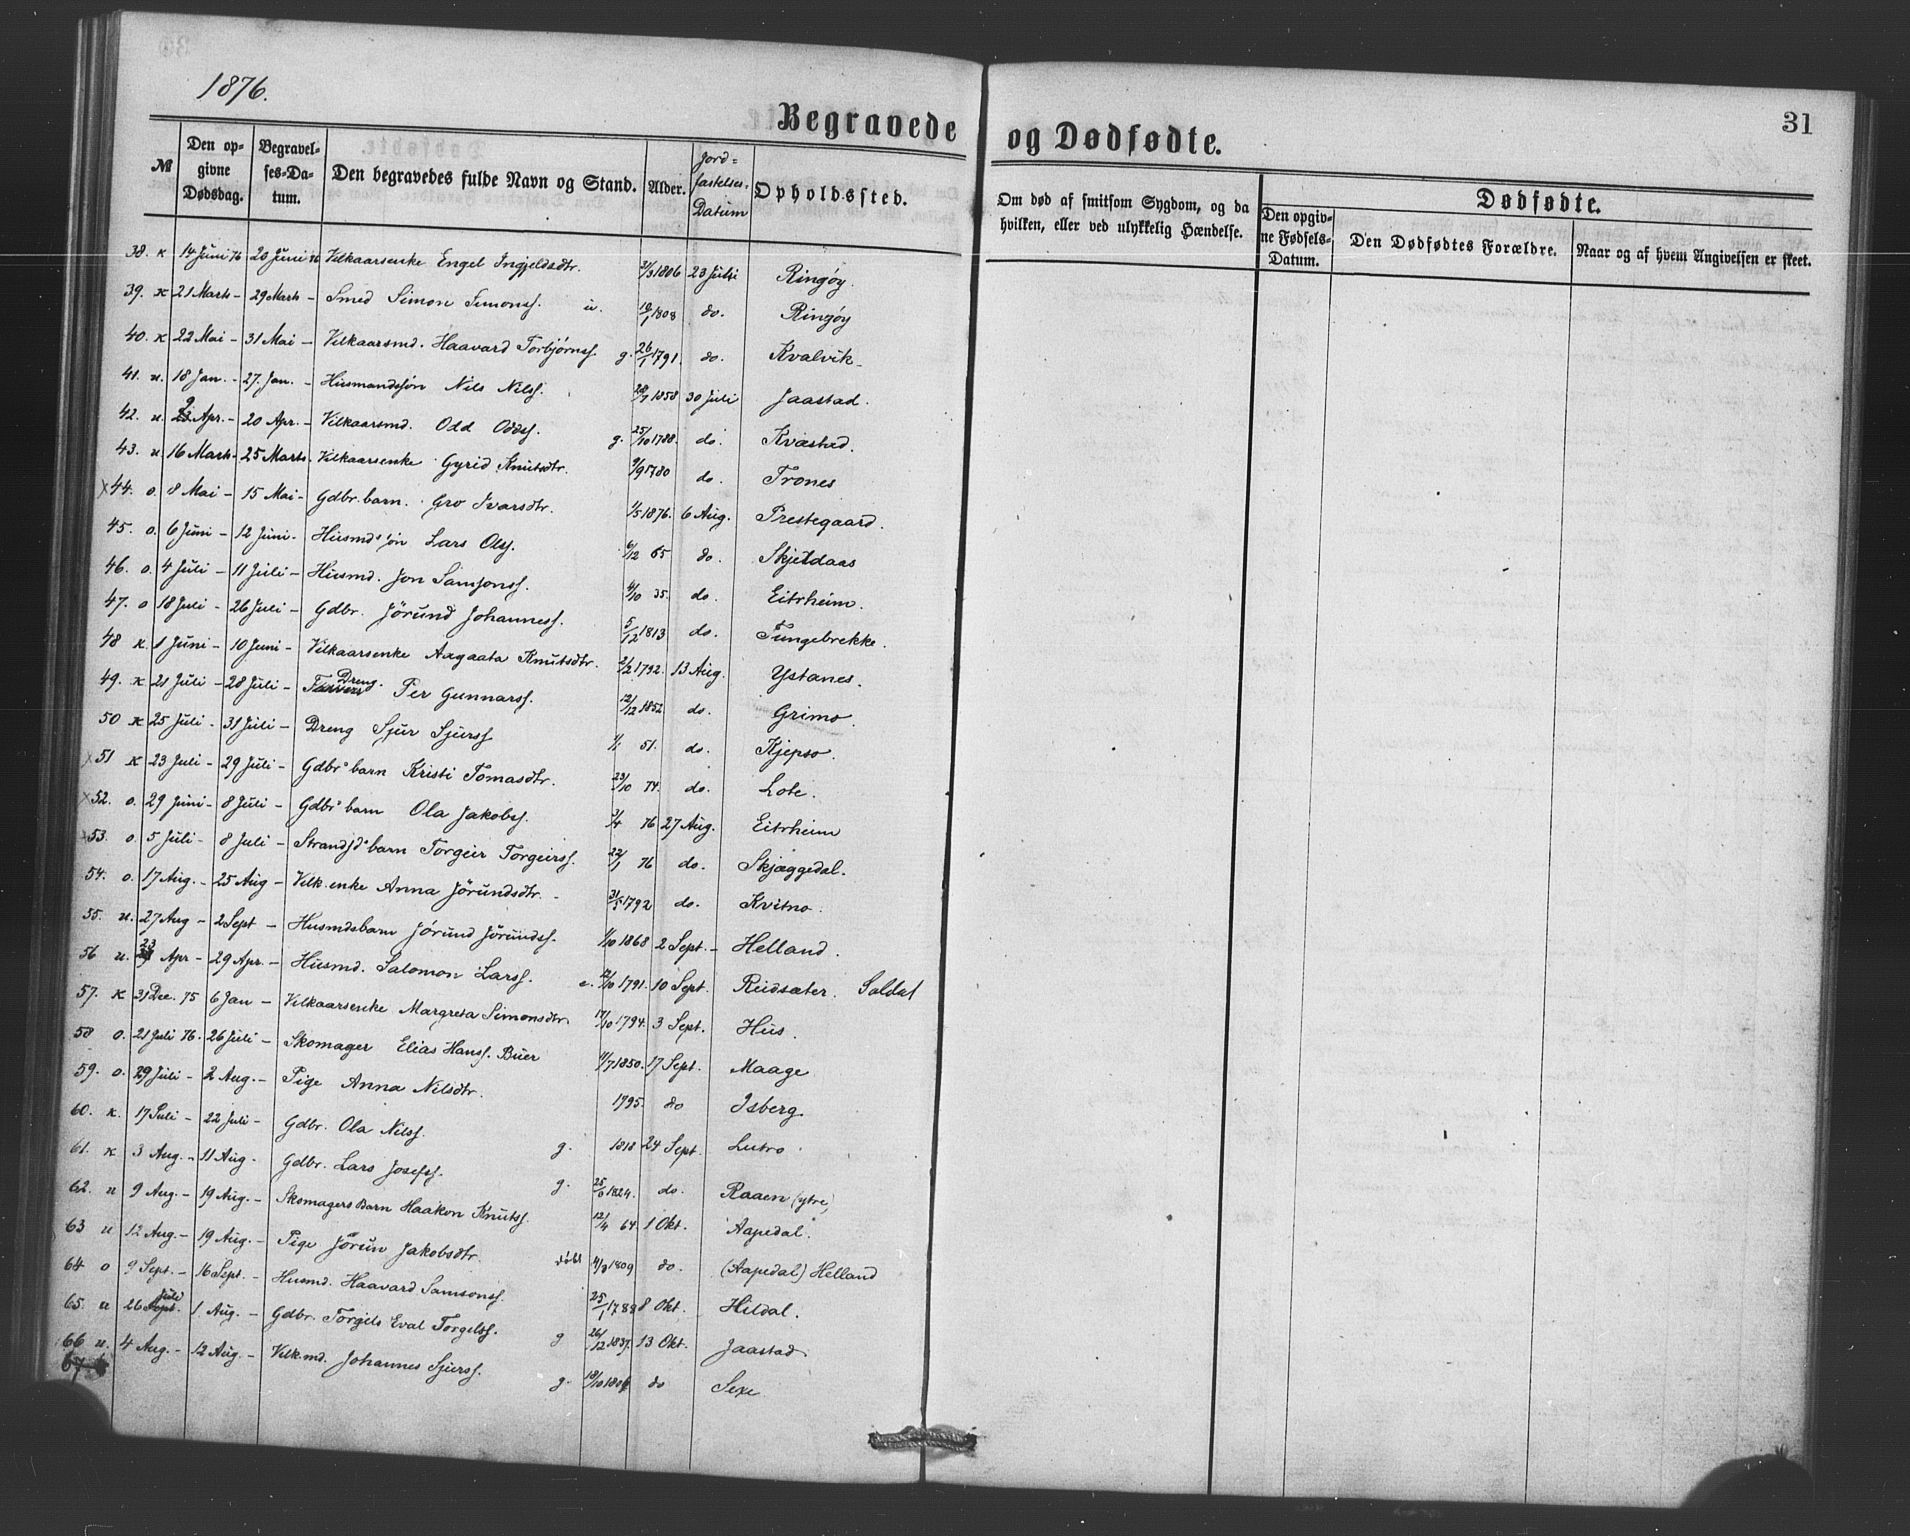 1876.
31
Begravede og Dødfødte.
№ Den opgivne Dødsdag. Begravelses-Datum. Den begravedes fulde Navn og Stand. Alder. Jordfæstelses-Datum Opholdssted. Om død af smitsom Sygdom, og da hvilken, eller ved ulykkelig Hændelse. Dødfødte. Den opgivne Fødsels-Datum. Den Dødfødtes Forældre. Naar og af hvem Angivelsen er skeet.
38. K 14 Juni 76 20 Juni 76 Vilkaarsenke Engel Ingjeldsdtr. 1806 23 Juli Ringøy.
39. K 21 Marts - 29 Marts - Smed Simon Simonsf. u. 10/1 1808 do. Ringøy
40. K 22 Mai - 31 Mai - Vilkaarsmd. Haavard Torbjørnsf. g. 26/1 1791. do. Kvalvik
41. u. 18 Jan. - 27. Jan. - Husmandssøn Nils Nilsf. 1858 30 Juli Jaastad.
42. u. Apr. - 20 Apr. - Vilkaarsmd. Odd Oddsf. g. 25/10 1788. do. Kvæstad.
43. u 16 Marts - 25 Marts - Vilkaarsenke Gyrid Knutsdtr. 9/9 1780 do. Trones
x 44. o. 8 Mai - 15 Mai - Gdbr. barn. Gro Ivarsdtr. 1/5 1876. 6 Aug. Prestegaard.
45. o. 6 Juni - 12 Juni - Husmds søn Lars Olsf. 6/12 65 do. Skjeldaas
46. o. 4 Juli - 11 Juli - Husmd. Jon Samsonsf. 4/10 35. do. Eitrheim.
47. o 18 Juli - 26 Juli - Gdbr. Jörund Johannesf. 5/12 1813 do. Tungebrekke.
48 K. 1 Juni - 10 Juni - Vilkaarsenke Axgaata Knutsdtr. 2/2 1792. 13 Aug. Ystanes.
49. K 21 Juli - 28 Juli - Dreng. Per Gunnarsf. 12/12 1852 do. Grimo.
50 K 25 Juli - 31 Juli - Dreng Sjur Sjursf 1/1 51. do. Kjepso.
x 51 K 23 Juli - 29 Juli - Gdbrs barn Kristi Tomasdtr. 23/10 74. do. Lote.
x 52. o. 29 Juni - 8 Juli - Gdbrs barn Ola Jakobsf. 3/4 76 27 Aug. Eitrheim
x 53. o. 5 Juli - 8 Juli - Strandsds barn Torgeir Torgeirsf. 22/1 76 do. Skjæggedal.
54. o. 17 Aug. - 25 Aug - Vilk. enke Anna Jörundsdtr. - 31/5 1792 do. Kvitno.
55. u. 27 Aug - 2 Sept - Husmdsbarn Jörund Jörundsf. 1/10 1868 2 Sept. - Helland.
56 u. 23 Apr - 29 Apr. - Husmd. Salomon Larsf. e. 12/10 1791. 10 Sept. Reidsæter. Soldat
57. K 31 Dec. 75 6 Jan - Vilkaarsenke Margreta Simonsdtr. 17/10 1794. 3 Sept. Hus.
58 o. 21 Juli 76. 26 Juli - Skomager Elias Hansf. Buer 11/7 1850. 17 Sept. Maage
59. o. 29 Juli - 2 Aug. - Pige Anna Nilsdtr. 1795. do Isberg.
60. K. 17 Juli - 22 Juli - Gdbr. Ola Nilsf. g. 1818 24 Sept. Lutro.
61. K 3 Aug. - 11 Aug. Gdbr. Lars Josefsf. g. 1824. do. Raaen (ytre)
62. u 9 Aug. - 19 Aug. - Skomagers Barn Haakon Knutsf. 12/4 64. 1 Okt. Aapedal.
63 u 12 Aug. - 19 Aug. - Pige Jörun Jakobsdtr. døbt 1809 do. (Aapedal) Helland
64 o 9 Sept. - 16 Sept. - Husmd. Haavard Samsonsf. 25/1 1788 8 Okt. Hildal.
65. u 26 Juli 1 Aug. - Gdbr. Torgils Eval Torgilsf. g 26/12 1837. 13 Okt. Jaastad.
66 u. 4 Aug. - 12 Aug. - Vilk.md. Johannes Sjursf. g. 18/10 1806 do Sexe
67